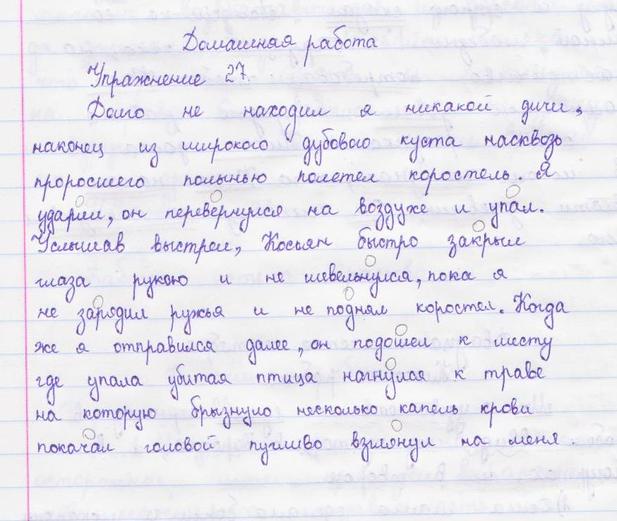 Домашняя работа
Упражнение 27.
Долго не находил я никакой дичи,
наконец из широкого дубового куста насквозь
проросшего полынью полетел коростель. Я
ударил, он перевернулся на воздухе и упал.
Услышав выстрел, Косьян быстро закрыл
глаза рукою и не шевельнулся, пока я
не зарядил ружья и не поднял коростел. Когда
же я отправился далее, он подошел к месту
где упала убитая птица нагнулся к траве
на которую брызнуло несколько капель крови
покачал головой пугливо взглянул на меня.